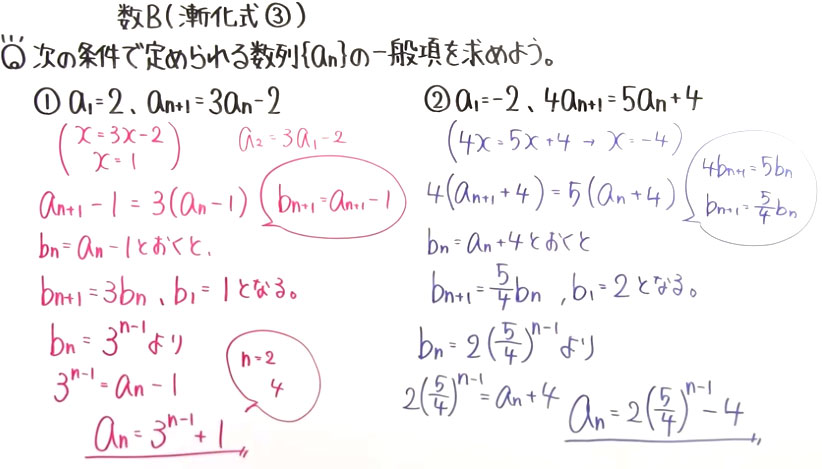 数B(漸化式③)
Q 次の条件で定められる数列{an}の一般項を求めよう。
① a₁=2、an+1=3an-2
(x=3x-2
x=1)
a₂=3a₁-2
an+1-1=3(an-1)
bn+1=an+1-1
bn=an-1とおくと、
bn+1=3bn、b₁=1となる。
bn=3ⁿ⁻¹より
n=2
4
3ⁿ⁻¹=an-1
an=3ⁿ⁻¹+1
② a₁=-2、4an+1=5an+4
(4x=5x+4→x=-4)
4bn+1=5bn
bn+1=5/4bn
4(an+1+4)=5(an+4)
bn=an+4とおくと
bn+1=5/4bn,b₁=2となる。
bn=2(5/4)ⁿ⁻¹より
2(5/4)ⁿ⁻¹=an+4
an=2(5/4)ⁿ⁻¹-4